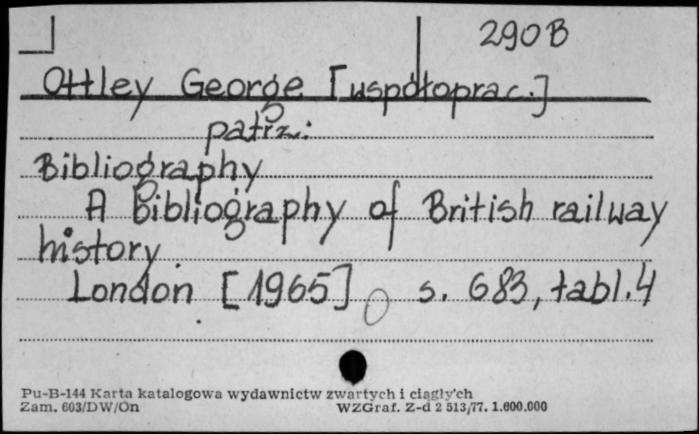 290 B
Ottley George [współoprac.]
patrz:
Bibliography
A Bibliography of British railway
history.
London [1965] s. 683, tabl. 4
Pu-B-144 Karta katalogowa wydawnictw zwartych i ciągłych
Zam. 603/DW/On WZGraf. Z-d 2 513/77. 1.600.000